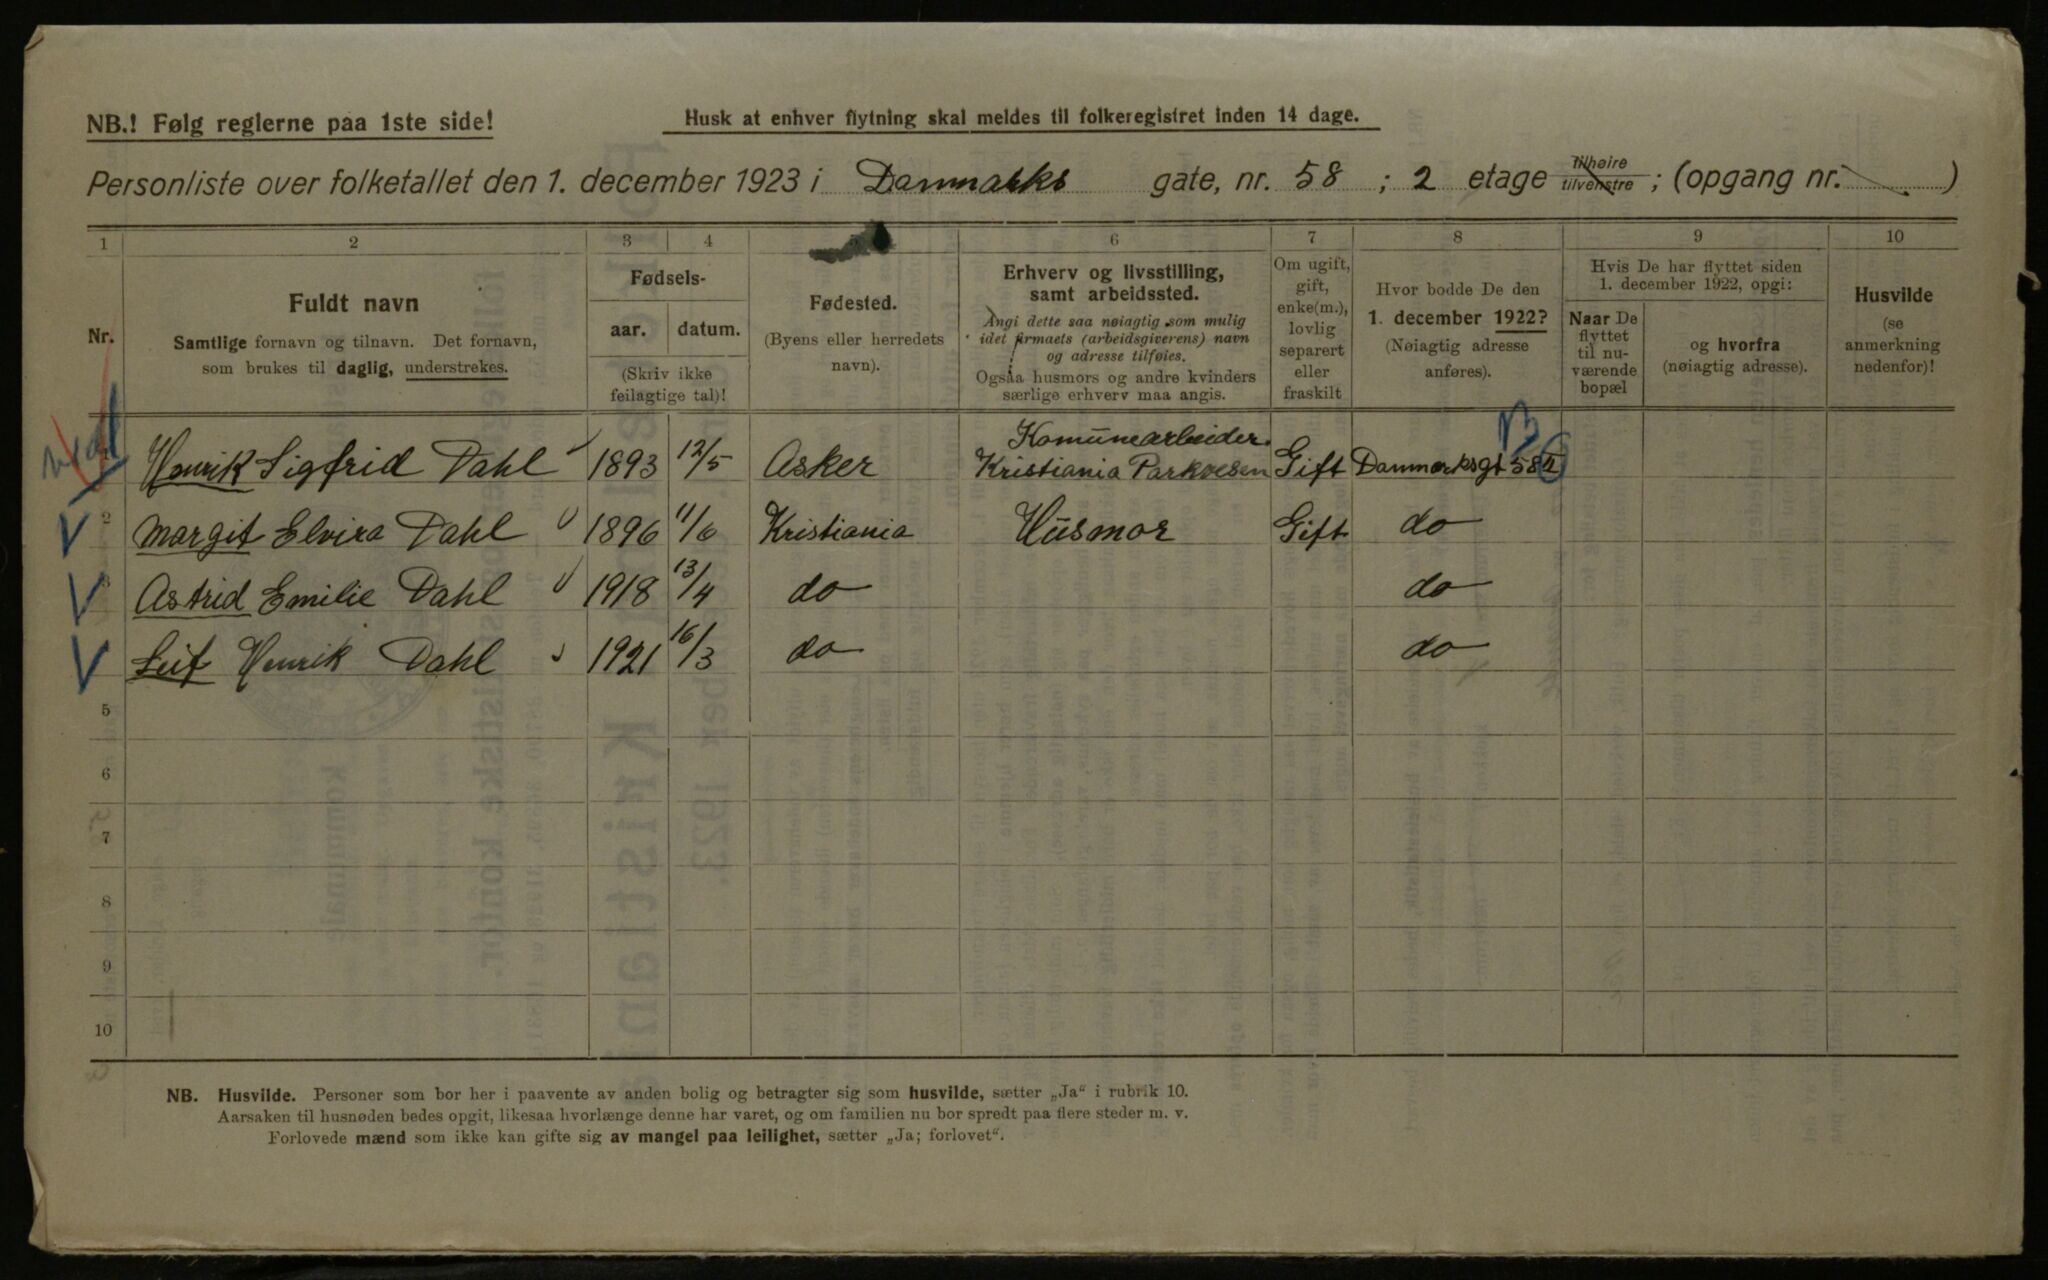 NB.! Følg reglerne paa 1ste side!
Husk at enhver flytning skal meldes til folkeregistret inden 14 dage.
Personliste over folketallet den 1. december 1923 i Danmarks gate, nr. 58 ; 2 etage tilhøire tilvenstre ; (opgang nr. )
1 2 3 4 5 6 7 8 9 10
Nr.
Fuldt navn
Samtlige fornavn og tilnavn. Det fornavn,
som brukes til daglig, understrekes.
Fødsels-
aar. datum.
(Skriv ikke
feilagtige tal)!
Fødested.
(Byens eller herredets
navn).
Erhverv og livsstilling,
samt arbeidssted.
Angi dette saa nøiagtig som mulig
idet firmaets (arbeidsgiverens) navn
og adresse tilføies.
Ogsaa husmors og andre kvinders
særlige erhverv maa angis.
Om ugift,
gift,
enke(m.),
lovlig
separert
eller
fraskilt
Hvor bodde De den
1. december 1922?
(Nøiagtig adresse
anføres).
Hvis De har flyttet siden
1. december 1922, opgi:
Naar De
flyttet
til nu-
værende
bopæl
og hvorfra
(nøiagtig adresse).
Husvilde
(se
anmerkning
nedenfor)!
Henrik Sigfrid Dahl 1893 12/5 Asker Komünearbeider. Kristiania Parkvesen Gift Danmarksgt 58 II
2 Margit Elvira Dahl 1896 11/6 Kristiania Hüsmor Gift do
3 Astrid Emilie Dahl 1918 13/4 do do
Leif Henrik Dahl 1921 16/3 do do
5
6
7
8
9
10
NB. Husvilde. Personer som bor her i paavente av anden bolig og betragter sig som husvilde, sætter „Ja“ i rubrik 10.
Aarsaken til husnøden bedes opgit, likesaa hvorlænge denne har varet, og om familien nu bor spredt paa flere steder m. v.
Forlovede mænd som ikke kan gifte sig av mangel paa leilighet, sætter „Ja; forlovet“.